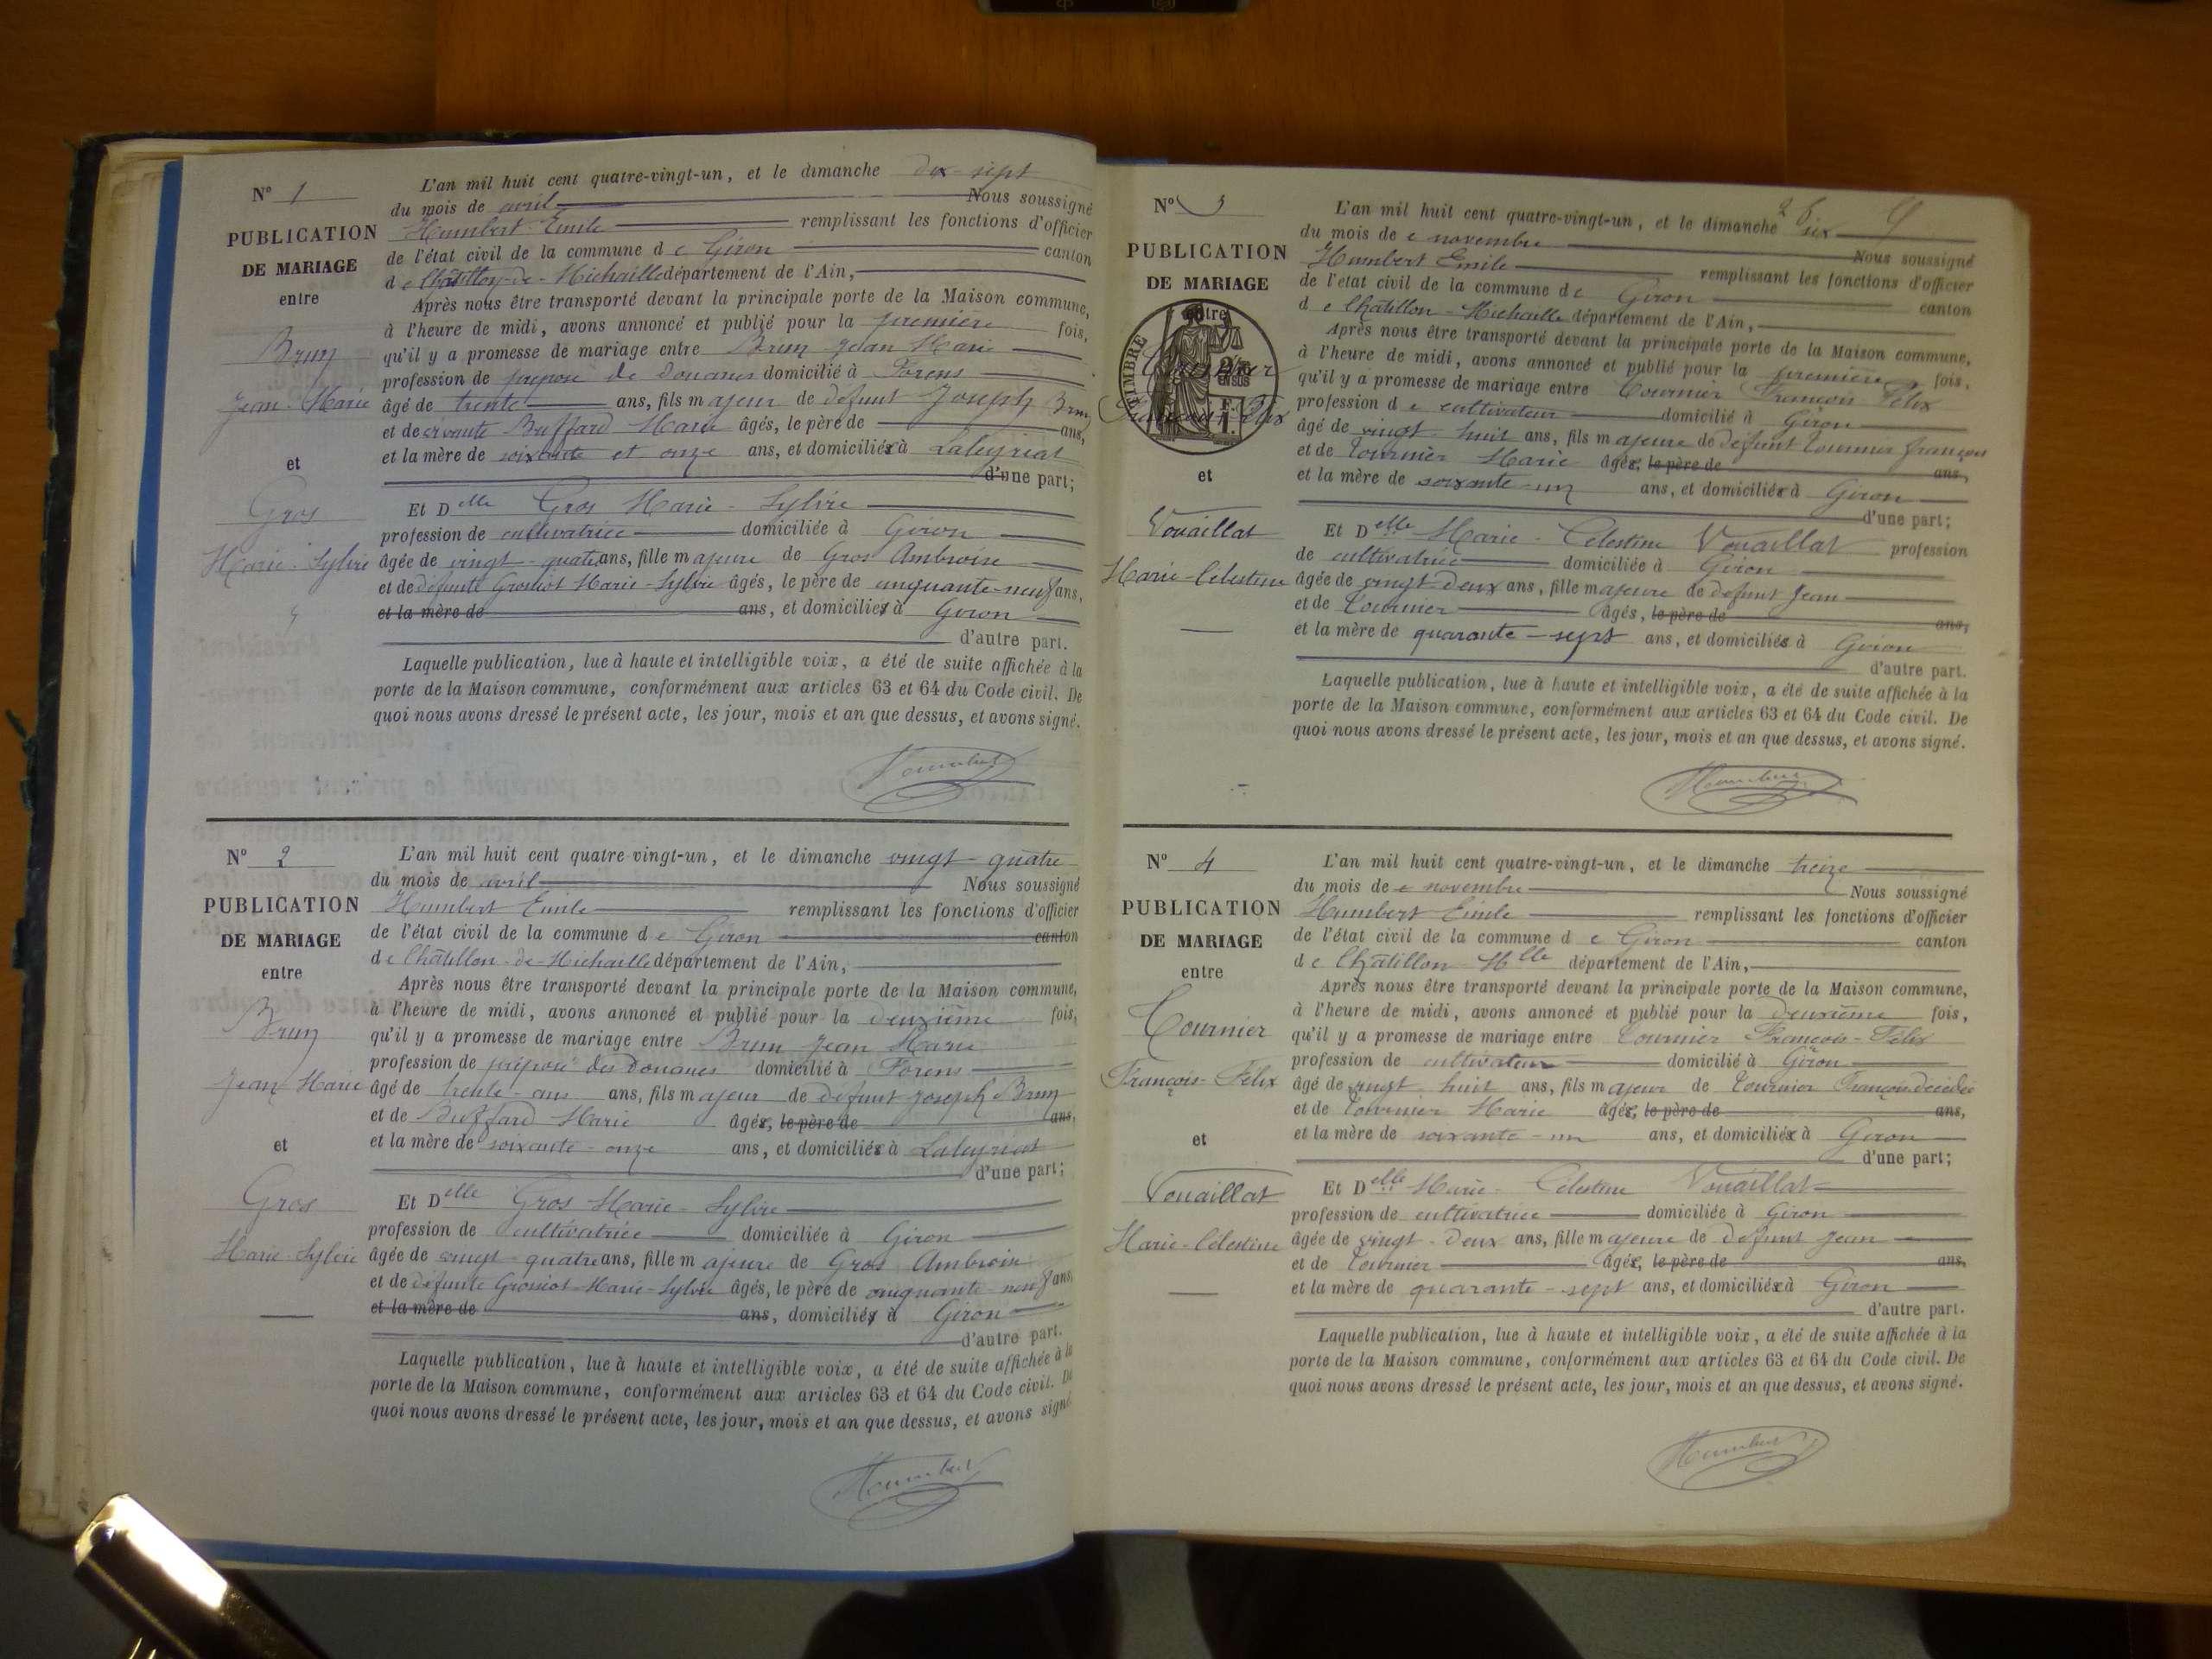 N° 1
PUBLICATION
DE MARIAGE
entre
Brun
Jean-Marie
et
Gros
Marie-Sylvie
L'an mil huit cent quatre-vingt-un, et le dimanche dix-sept
du mois de avril Nous soussigné
Humbert Emile remplissant les fonctions d'officier
de l'état civil de la commune de Giron canton
de Châtillon-de-Michaille département de l'Ain,
Après nous être transporté devant la principale porte de la Maison commune,
à l'heure de midi, avons annoncé et publié pour la première fois,
qu'il y a promesse de mariage entre Brun Jean Marie
profession de préposé de Douanes domicilié à Forens
âgé de trente ans, fils majeur de défunt Joseph Brun
et de Buffard Marie âgés, le père de ans,
et la mère de soixante et onze ans, et domiciliés à Laleyriat
d'une part;
Et Delle Gros Marie-Sylvie
profession de cultivatrice domiciliée à Giron
âgée de vingt-quatre ans, fille majeure de Gros Ambroise
et de défunte Grosiot Marie-Sylvie âgés, le père de cinquante-neuf ans,
et la mère de ans, et domiciliés à Giron
d'autre part.
Laquelle publication, lue à haute et intelligible voix, a été de suite affichée à la
porte de la Maison commune, conformément aux articles 63 et 64 du Code civil. De
quoi nous avons dressé le présent acte, les jour, mois et an que dessus, et avons signé.
Humbert
N° 2
PUBLICATION
DE MARIAGE
entre
Brun
Jean Marie
et
Gros
Marie-Sylvie
L'an mil huit cent quatre-vingt-un, et le dimanche vingt-quatre
du mois de avril Nous soussigné
Humbert Emile remplissant les fonctions d'officier
de l'état civil de la commune de Giron canton
de Châtillon-de-Michaille département de l'Ain,
Après nous être transporté devant la principale porte de la Maison commune,
à l'heure de midi, avons annoncé et publié pour la deuxième fois,
qu'il y a promesse de mariage entre Brun Jean Marie
profession de préposé des Douanes domicilié à Forens
âgé de trente-ans ans, fils majeur de défunt Joseph Brun
et de Buffard Marie âgés, le père de ans,
et la mère de soixante-onze ans, et domiciliés à Laleyriat
d'une part;
Et Delle Gros Marie-Sylvie
profession de cultivatrice domiciliée à Giron
âgée de vingt-quatre ans, fille majeure de Gros Ambroise
et de défunte Grosiot Marie-Sylvie âgés, le père de cinquante-neuf ans,
et la mère de ans, domiciliés à Giron
d'autre part.
Laquelle publication, lue à haute et intelligible voix, a été de suite affichée à la
porte de la Maison commune, conformément aux articles 63 et 64 du Code civil. De
quoi nous avons dressé le présent acte, les jour, mois et an que dessus, et avons signé
Humbert
N° 3
PUBLICATION
DE MARIAGE
entre
TIMBRE
Tournier
François-Félix
et
Vouaillat
Marie-Célestine
L'an mil huit cent quatre-vingt-un, et le dimanche six
du mois de novembre Nous soussigné
Humbert Emile remplissant les fonctions d'officier
de l'état civil de la commune de Giron canton
de Châtillon-Michaille département de l'Ain,
Après nous être transporté devant la principale porte de la Maison commune,
à l'heure de midi, avons annoncé et publié pour la première fois,
qu'il y a promesse de mariage entre Tournier François Félix
profession de cultivateur domicilié à Giron
âgé de vingt-huit ans, fils majeure de défunt Tournier françois
et de Tournier Marie âgés, le père de ans,
et la mère de soixante-un ans, et domiciliés à Giron
d'une part;
Et Delle Marie-Célestine Vouaillat profession
de cultivatrice domiciliée à Giron
âgée de vingt-deux ans, fille majeure de défunt Jean
et de Tournier âgés, le père de ans,
et la mère de quarante-sept ans, et domiciliés à Giron
d'autre part.
Laquelle publication, lue à haute et intelligible voix, a été de suite affichée à la
porte de la Maison commune, conformément aux articles 63 et 64 du Code civil. De
quoi nous avons dressé le présent acte, les jour, mois et an que dessus, et avons signé.
Humbert
N° 4
PUBLICATION
DE MARIAGE
entre
Tournier
François-Félix
et
Vouaillat
Marie-Célestine
L'an mil huit cent quatre-vingt-un, et le dimanche treize
du mois de novembre Nous soussigné
Humbert Emile remplissant les fonctions d'officier
de l'état civil de la commune de Giron canton
de Châtillon-Mlle département de l'Ain,
Après nous être transporté devant la principale porte de la Maison commune,
à l'heure de midi, avons annoncé et publié pour la deuxième fois,
qu'il y a promesse de mariage entre Tournier François-Félix
profession de cultivateur domicilié à Giron
âgé de vingt-huit ans, fils majeur de Tournier François décédé
et de Tournier Marie âgés, le père de ans,
et la mère de soixante-un ans, et domiciliés à Giron
d'une part;
Et Delle Marie-Célestine Vouaillat
profession de cultivatrice domiciliée à Giron
âgée de vingt-deux ans, fille majeure de défunt Jean
et de Tournier âgés, le père de ans,
et la mère de quarante-sept ans, et domiciliés à Giron
d'autre part.
Laquelle publication, lue à haute et intelligible voix, a été de suite affichée à la
porte de la Maison commune, conformément aux articles 63 et 64 du Code civil. De
quoi nous avons dressé le présent acte, les jour, mois et an que dessus, et avons signé.
Humbert